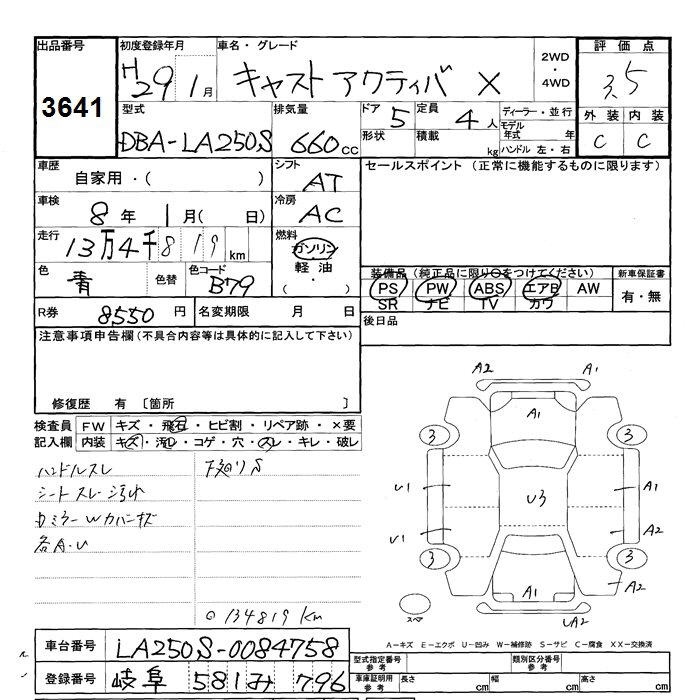 出品番号 3641
初度登録年月 H29 1月
車名・グレード キャスト アクティバ X
2WD・4WD
評価点 3.5
外装 内装
C C
型式 DBA-LA250S
排気量 660cc
ドア 5 定員 4人
形状 積載 kg
ディーラー・並行
モデル年式 年
ハンドル 左・右
車歴 自家用・( )
シフト AT
セールスポイント (正常に機能するものに限ります)
車検 8年 1月(日)
冷房 AC
走行 13万4千819km
燃料 ガソリン 軽油・( )
色 青 色替 色コード B79
装備品 (純正品に限り○をつけてください) 新車保証書
PS PW ABS エアB AW 有・無
SR ナビ TV カワ
R券 8550円 名変期限 月 日
後日品
注意事項申告欄 (不具合内容等は具体的に記入して下さい)
修復歴 有 〔箇所 〕
検査員 FW キズ・飛石・ヒビ割・リペア跡・×要
記入欄 内装 キズ・汚レ・コゲ・穴・スレ・キレ・破レ
ハンドルスレ 下廻りS
シートスレ 汚れ
カミラーWカバーキズ
各A・U
⊙134819km
A2 A1
A1
3 3
U1 U3 A1
U1 A2
3 3
A1 A2
スペア UA2
A－キズ E－エクボ U－凹み W－補修跡 S－サビ C－腐食 XX－交換済
車台番号 LA250S-0084758
登録番号 岐阜 581 み 796
型式指定番号 参考 類別区分番号 参考
車庫証明用 参考 長さ cm 幅 cm 高さ cm